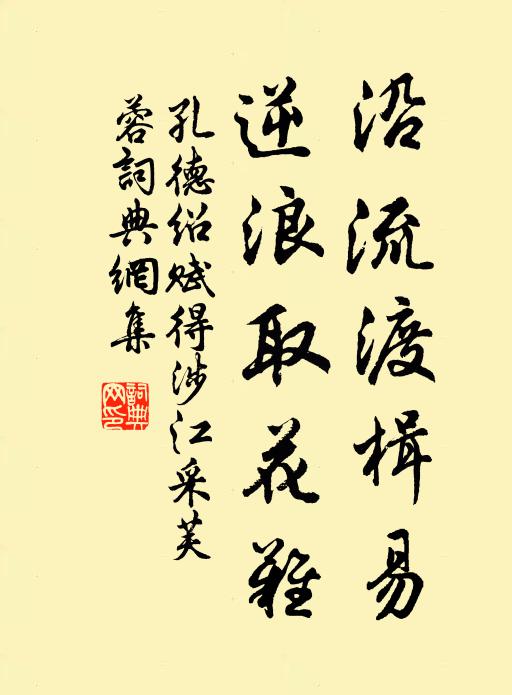 沿流渡楫易
逆浪取花難
孔德绍赋得涉江采芙
蓉詞典網集
詞典
网印